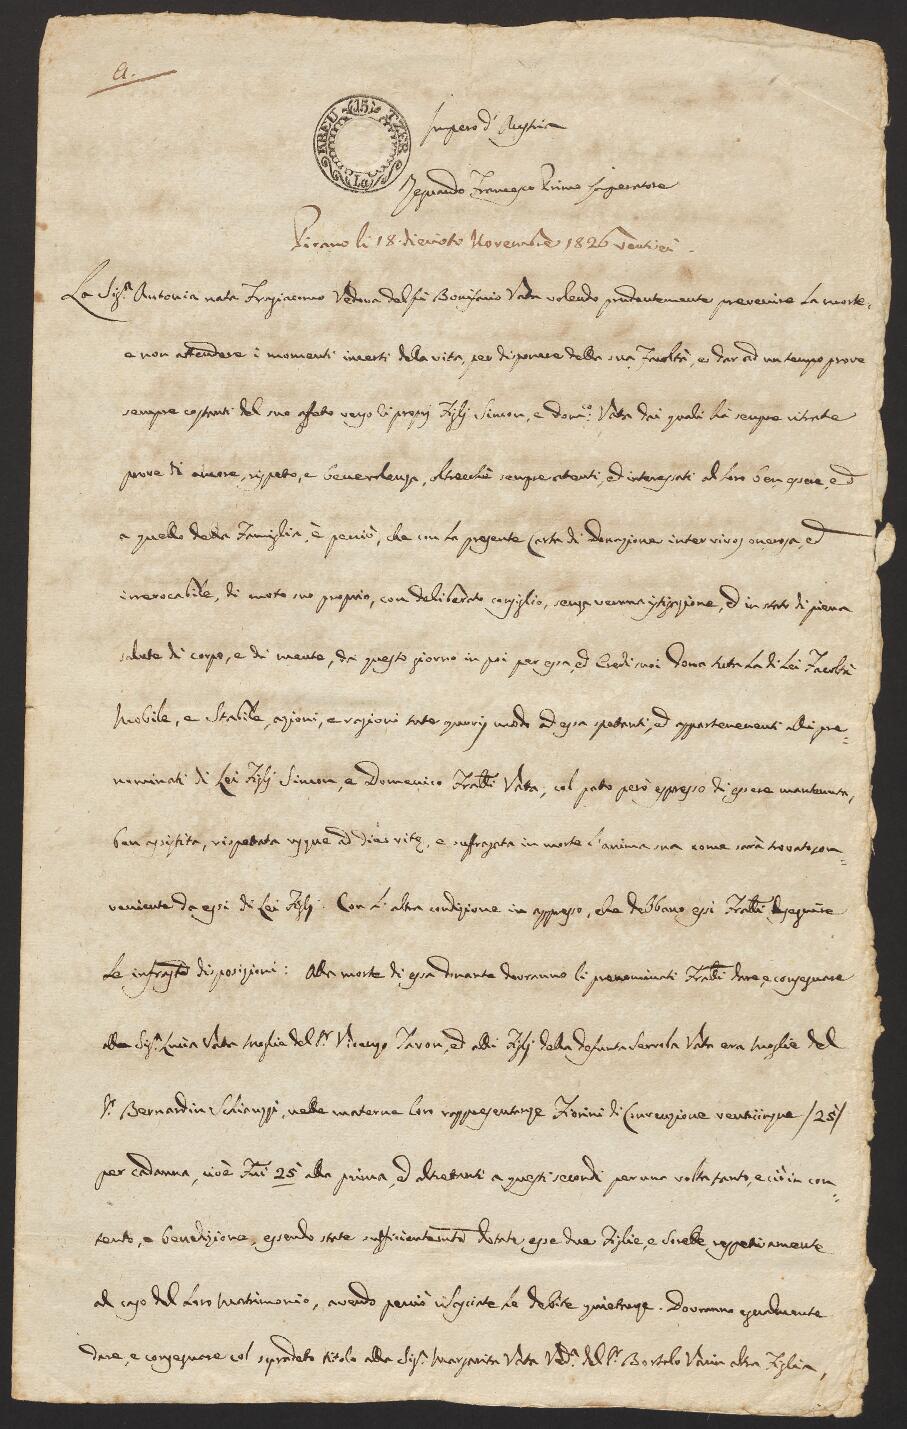 a.
15 KREUTZER
Impero d'Austria
Regnando Francesco Primo Imperatore
Pirano li 18. dieciotto Novembre 1826 ventisei.
La Sig.ª Antonia nata Fragiacomo Vedova del fu Bonifacio Vatta volendo prudentemente prevenire la morte,
e non attendere i momenti incerti della vita, per disponere della sua Facoltà, e dar ad un tempo prove
sempre costanti del suo affeto verso li proprj Figlj Simon, e Dom.co Vatta dai quali hà sempre ritrate
prove di amore, rispetto, e benevolenza, oltrechè sempre attenti, ed interessati al loro ben essere, ed
a quello della Famiglia, è perciò, che con la presente Carta di Donazione inter vivos onerosa, ed
irrevocabile, di moto suo proprio, con deliberato consiglio, senza veruna istigazione, ed in stato di piena
salute di corpo, e di mente, da questo giorno in poi per essa, ed Eredi suoi Dona tutta la di Lei Facoltà
Mobile, e Stabile, azioni, e ragioni modo ad essa spetanti, ed appartenementi alli pre=
nominati di Lei Figlj Simon, e Domenico Fratelli Vatta, col patto però espresso di essere mantenuta,
ben assistita, rispettata usque ad dies vitę, e suffragata in morte l'anima sua come sarà trovato con=
veniente da essi di Lei Figlj. Con l'altra condizione in appresso, che debbano essi Fratelli eseguire
le infraste disposizioni: Alla morte di essa donante dovranno li prenominati Fratelli dare, e consegnare
alla Sig.ª Lucia Vatta Moglie del S.r Vicenzo Tavon, ed alli Figlj della defunta Vatta era Moglie del
S.r Bernardin Schiavuzzi, nelle materne loro rappresentanze Fiorini di Convenzione venticinque /25/
per cadauna, cioè Fni 25 alla prima, ed altretanti a questi secondi per una volta tanto, e ciò in con=
tento, e benedizione, essendo state sufficientemte dotate esse due Figlie, e Sorelle respetivamente
al caso del loro Matrimonio, avendo perciò rilasciate le debite quietanze. Dovranno egualmente
dare, e consegnare col sopradeto titolo alla Sig.ª Margarita Vatta Ved.ª del S.r Bortolo Vanin altra Figlia,